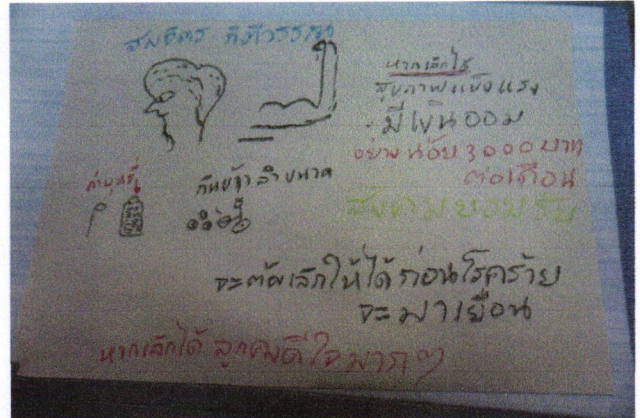 สมจิตร กิติวรรณ
หากเลิกได้
สุขภาพแข็งแรง
มีเงินออม
อย่างน้อย 3000 บาท
ต่อเดือน
สังคมยอมรับ
กินข้าวลำขนาด
จะต้องเลิกให้ได้ก่อนโรคร้าย
จะมาเยือน
หากเลิกได้ ลูกคงดีใจมากๆ